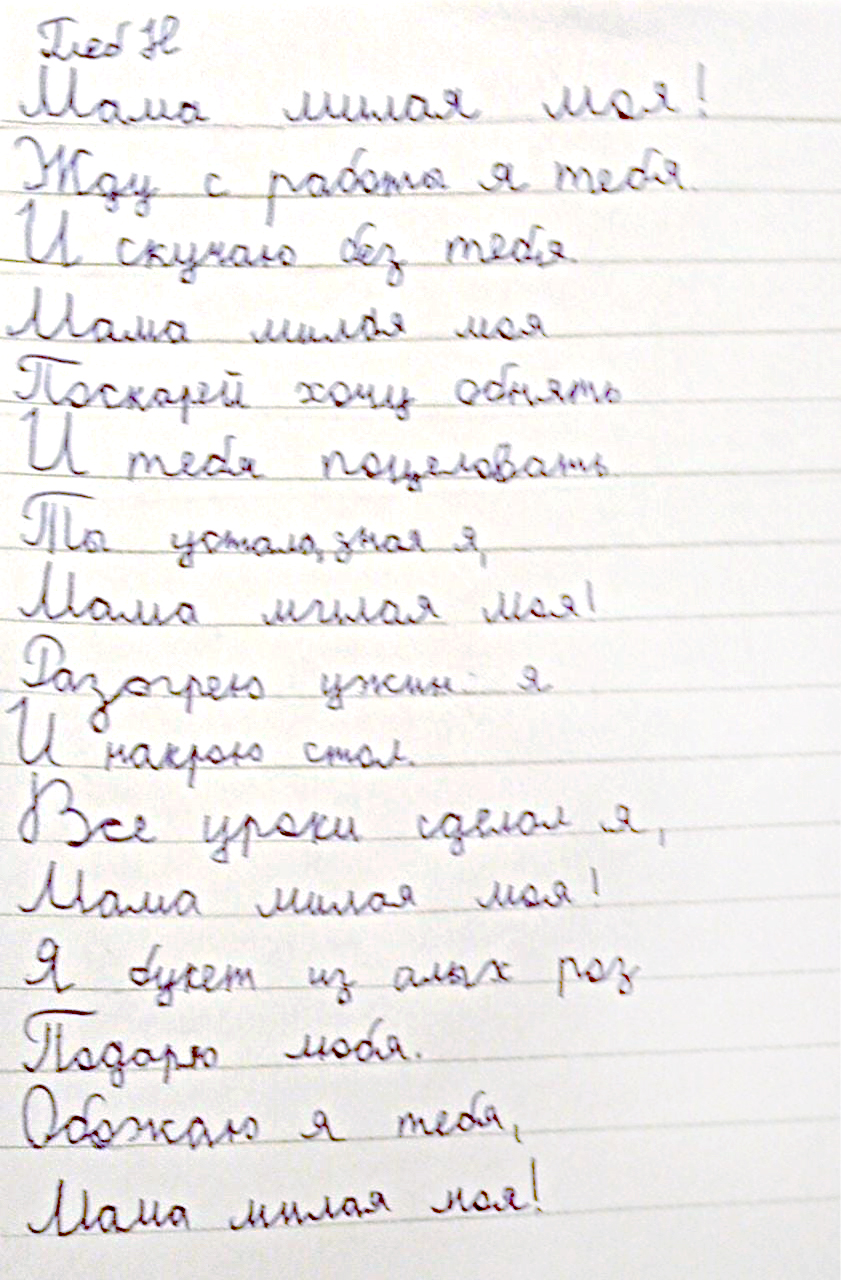 Глеб Н
Мама милая моя!
Жду с работы я тебя.
И скучаю без тебя.
Мама милая моя
Поскарей хочу обнять
И тебя поцеловать.
Ты устала, зная я,
Мама милая моя!
Разогрею ужин я
И накрою стол.
Все уроки сделал я,
Мама милая моя!
Я букет из алых роз
Подарю любя.
Обожаю я тебя,
Мама милая моя!